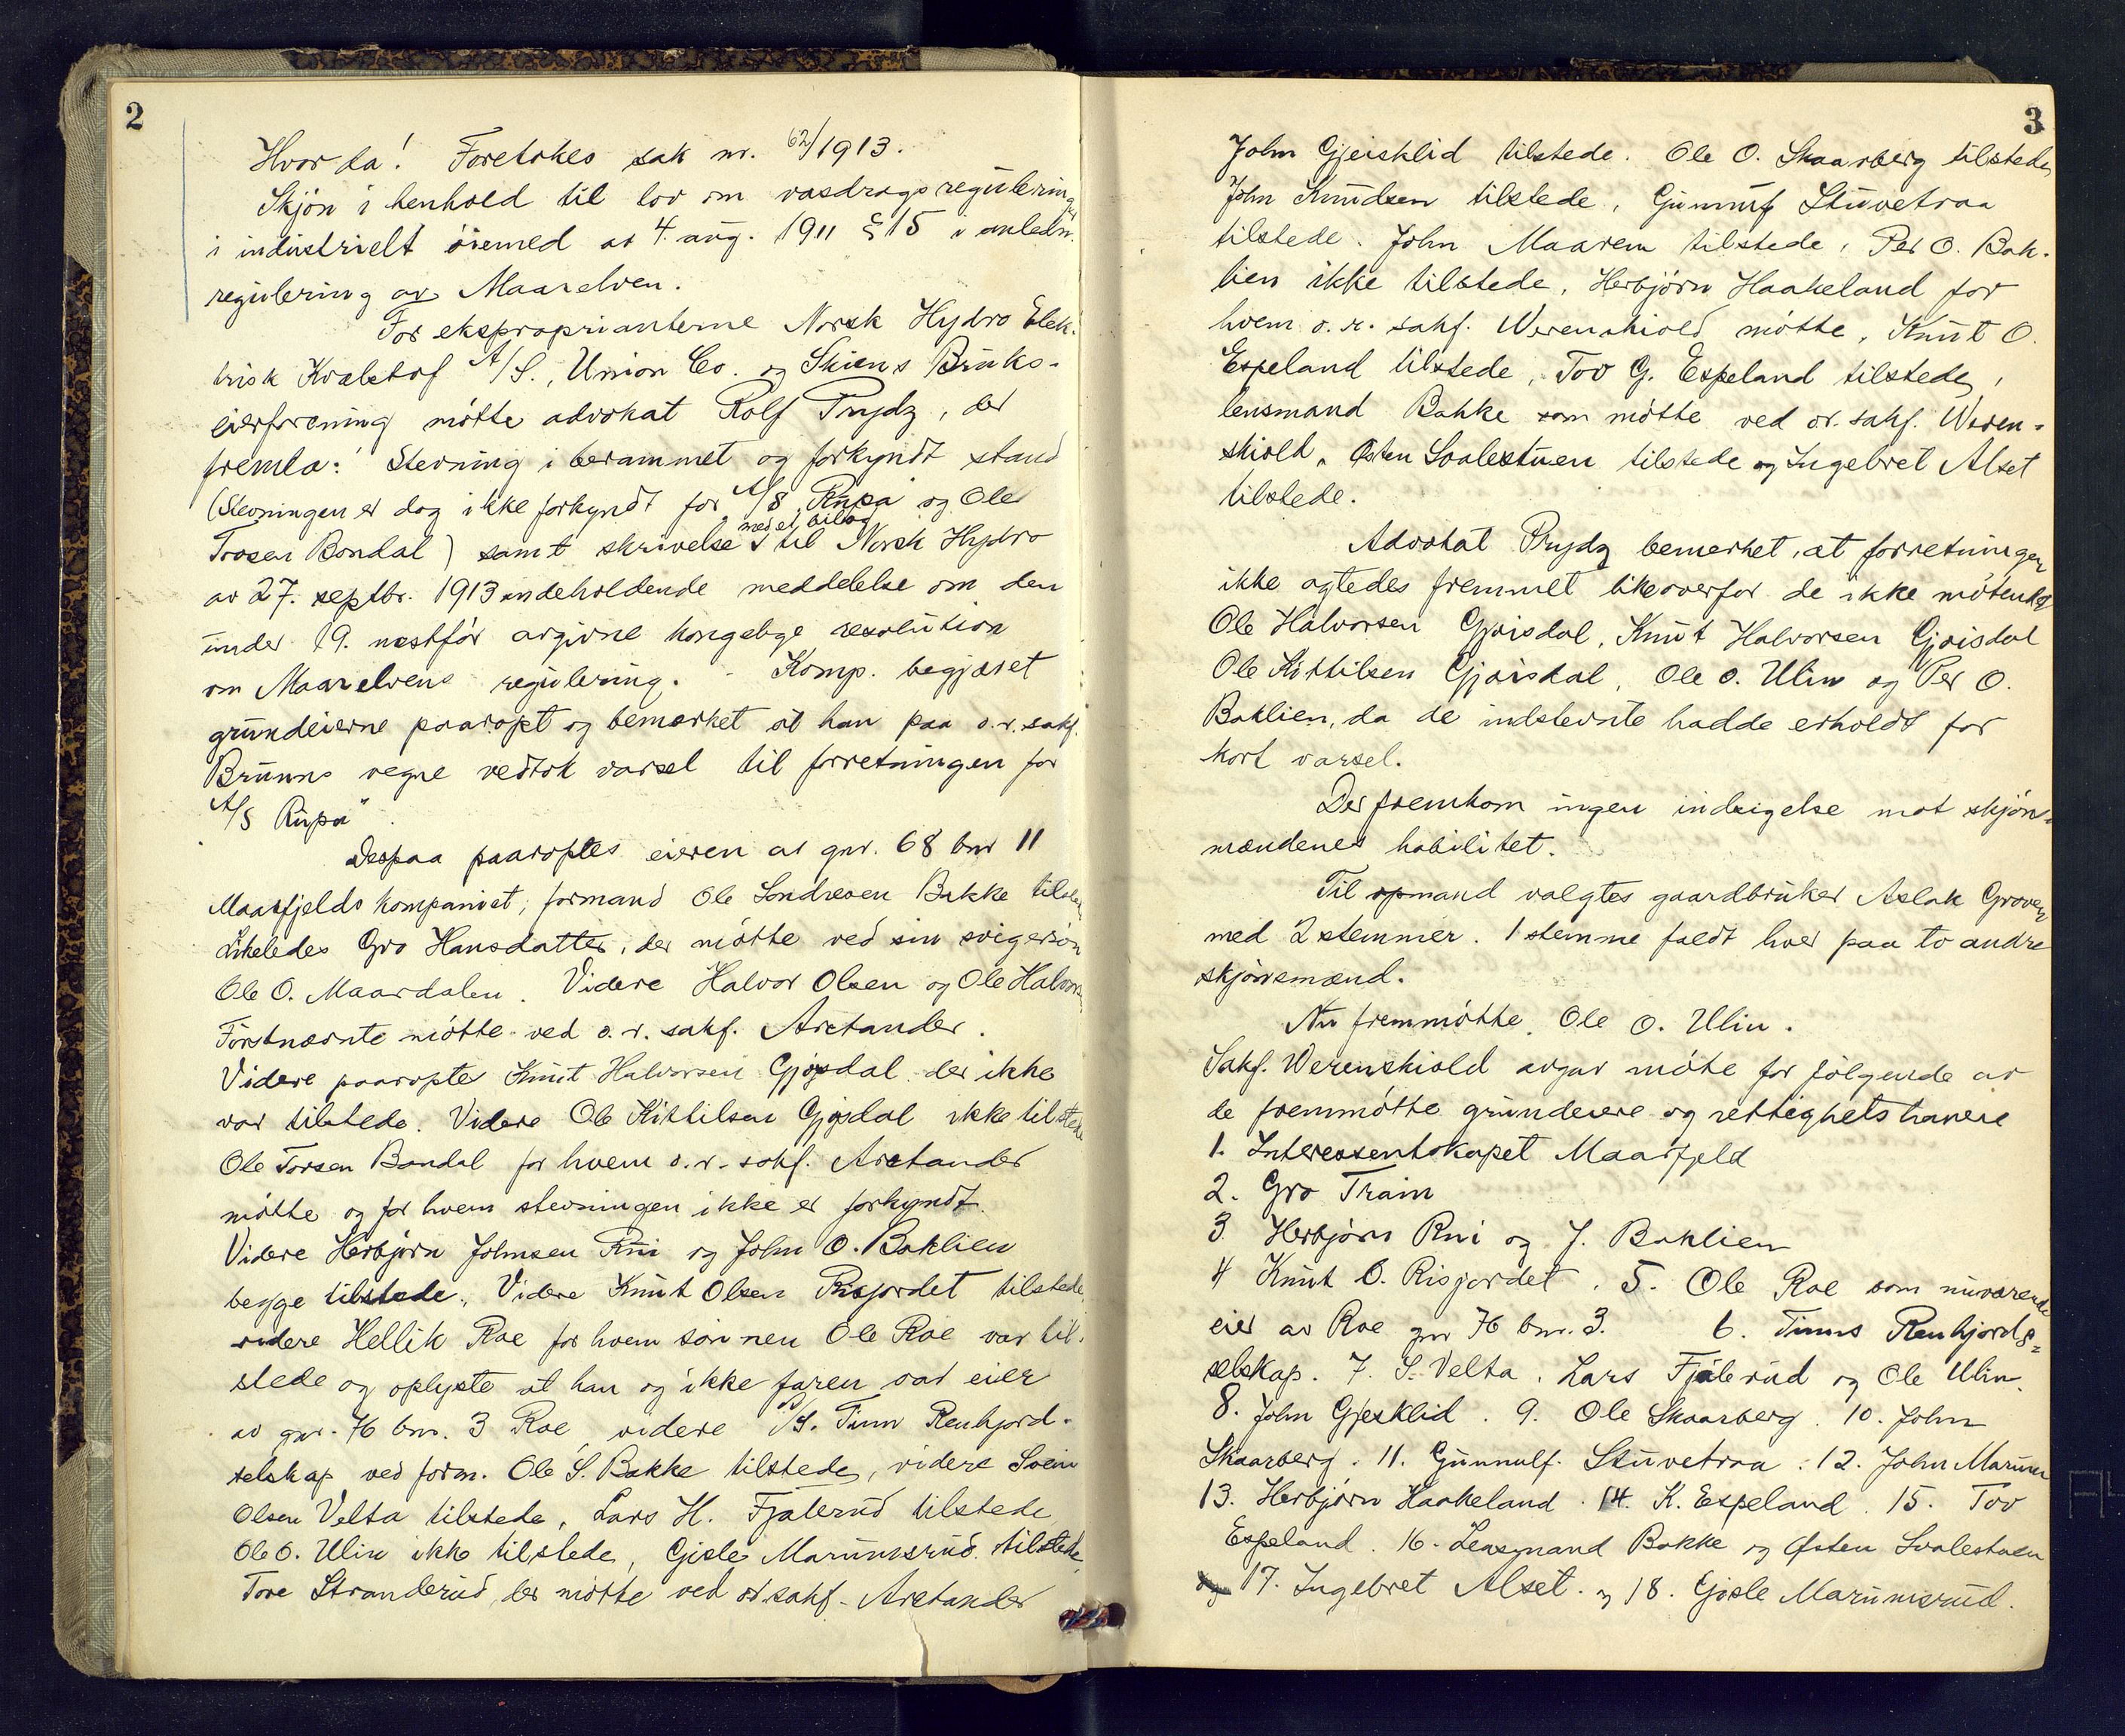 2
Hvorda! Foretokes sak nr. 62/1913.
Skjön i henhold til lov om vasdragsregulering
i industrielt öiemed av 4. aug. 1911 § 15 i anledn.
regulering av Maarelven.
For ekspropriantene Norsk Hydro Elek-
trisk Kvælstof A/S., Union Co. og Skiens Bruks-
eierforening mötte advokat Rolf Prydz, der
fremla: Stevning i berammet og forkyndt stand
(Stevningen er dog ikke forkyndt for A/S "Rupa" og Ole
Torsen Bondal) samt skrivelse med et bilag til Norsk Hydro
av 27. septbr. 1913 indeholdende meddelelse om den
under 19. næstfør avgivne kongelige resolution
om Maarelvens regulering. - Komp. begjæret
grundeierne paaropt og bemærket at han paa o.r.sakf.
Bruuns vegne vedtok varsel til forretningen for
A/S Rupa".
Derpaa paaroptes eieren av gnr. 68 bnr 11
Maarfjelds kompaniet, formand Ole Sondresen Bakke tilstede
Likeledes Gro Hansdatter, der mötte ved sin svigersön
Ole O. Maardalen. Videre Halvor Olsen og Ole Halvorsen
Förstnævnte mötte ved o.r. sakf. Arctander.
Videre paaroptes Knut Halvorsen Gjøsdal der ikke
var tilstede. Videre Ole Kittilsen Gjøsdal ikke tilstede
Ole Torsen Bondal for hvem o.r. sakf. Arctander
mötte og for hvem stevningen ikke er forkyndt.
Videre Herbjörn Johnsen Rui og John O. Baklien
begge tilstede. Videre Knut Olsen Risjordet tilstede,
videre Hellik Roe for hvem sönnen Ole Roe var til-
stede og oplyste at han og ikke faren var eier
av gnr. 76 bnr. 3 Roe videre A/S. Tinn Renhjord-
selskap ved form. Ole S. Bakke tilstede, videre Svein
Olsen Velta tilstede, Lars H. Fjølerud tilstede
Ole O. Ulin ikke tilstede, Gisle Marumsrud tilstede,
Tove Stranderud, der mötte ved or.sakf. Arctander
3
John Gjeisklid tilstede. Ole O. Skaarberg tilstede,
John Knudsen tilstede, Gunnulf Stuvetraa
tilstede. John Maarem tilstede, Per O. Bak-
lien ikke tilstede, Herbjörn Haakeland for
hvem o.r. sakf. Werenskiold mötte, Knut O.
Espeland tilstede, Tov G. Espeland tilstede,
lensmand Bakke som mötte ved or. sakf. Weren-
skiold, Østen Svalestuen tilstede og Ingebret Alset
tilstede.
Advokat Prydz bemerket, at forretningen
ikke agtedes fremmet likeoverfor de ikke mötende
Ole Halvorsen Gjøisdal, Knut Halvorsen Gjøisdal
Ole Kittilsen Gjøisdal, Ole O. Ulin og Per O.
Baklien, da de indstevnte hadde erholdt for
kort varsel.
Der fremkom ingen indsigelse mot skjöns-
mændenes habilitet.
Til opmand valgtes gaardbruker Aslak Groven
med 2 stemmer. 1 stemme faldt hver paa to andre
skjönsmænd.
Nu fremmötte Ole O. Ulin.
Sakf. Werenskiold avgav möte for fölgende av
de fremmötte grundeiere og rettighetshavere
1. Interessentskapet Maarfjeld
2. Gro Traim
3 Herbjörn Rui og J. Baklien
4 Knut O. Risjordet. 5. Ole Roe som nuværende
eier av Roe gnr 76 bnr. 3. 6. Tinns Renhjords-
selskap. 7. S. Velta, Lars Fjølerud og Ole Ulin.
8. John Gjesklid. 9. Ole Skaarberg. 10. John
Skaarberg. 11. Gunnulf Stuvetraa. 12. John Marum
13. Herbjörn Haakeland. 14. K. Espeland. 15. Tov
Espeland. 16. Lensmand Bakke og Østen Svalestuen
17. Ingebret Alset. og 18. Gisle Marumsrud.